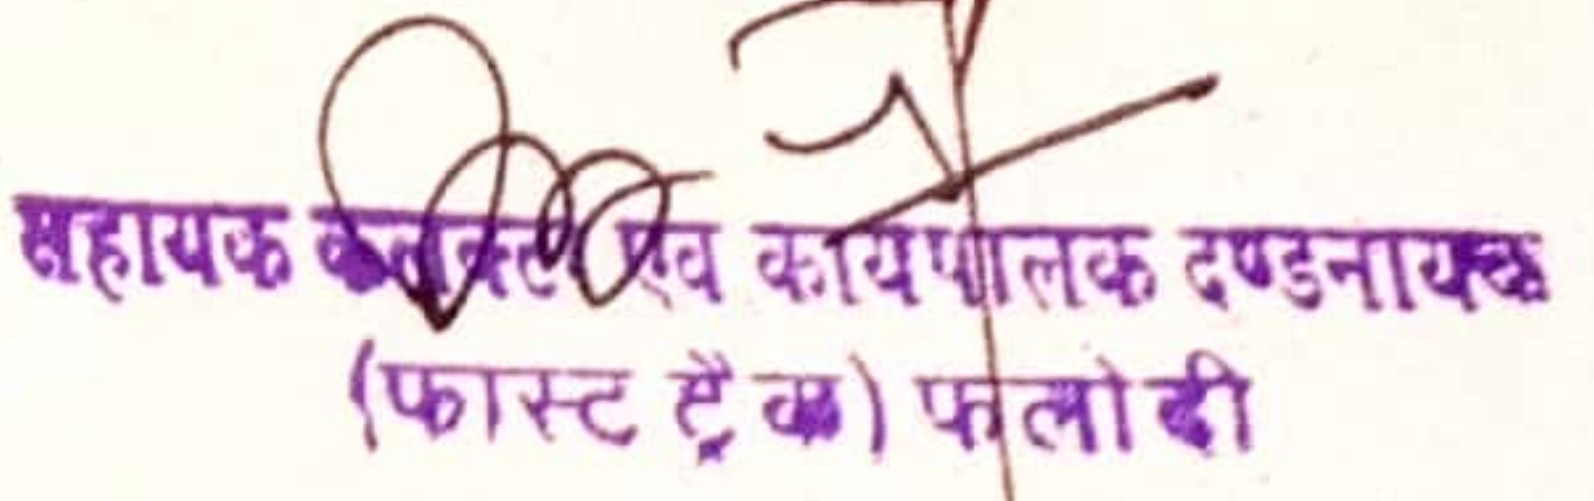 सहायक कलक्टर एवं कार्यपालक दण्डनायक
(फास्ट ट्रैक) फलोदी